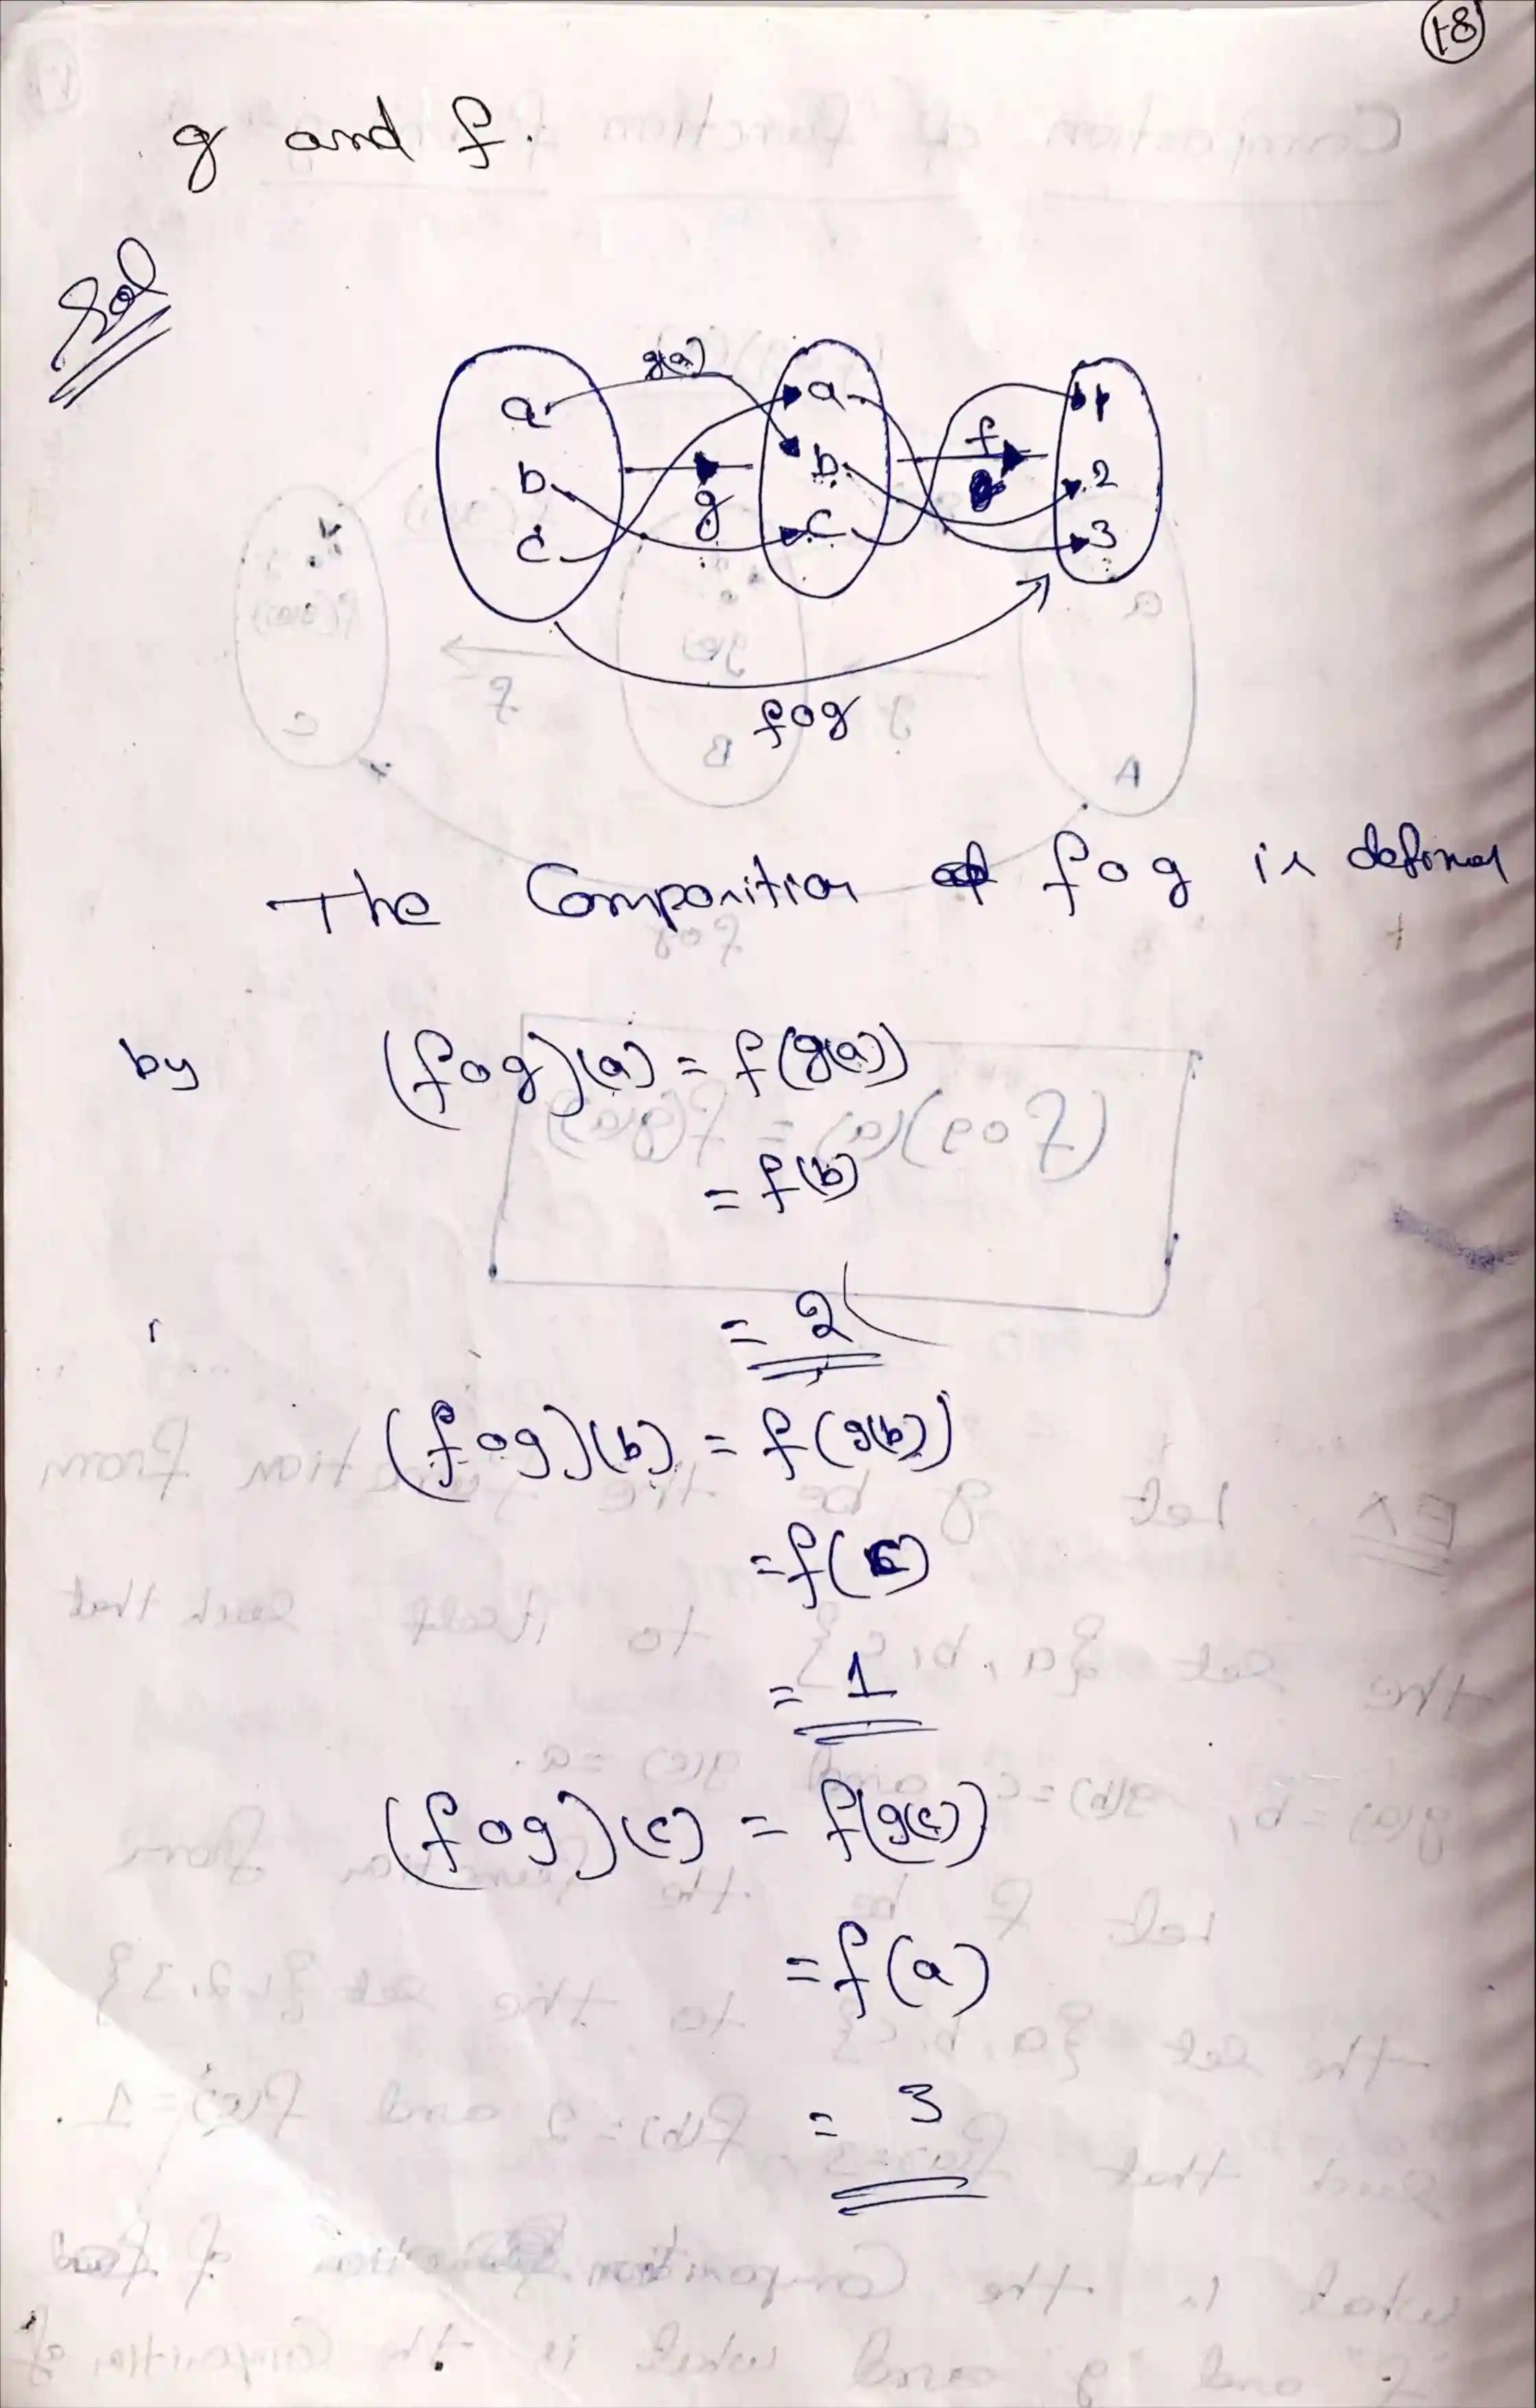 18
g and f.
Sol
g(a)
a a 1
f
b b 2
g
c c 3
fog
The Composition of fog is defined
by (fog)(a) = f(g(a))
= f(b)
= 2
(fog)(b) = f(g(b))
= f(c)
= 1
(fog)(c) = f(g(c))
= f(a)
= 3